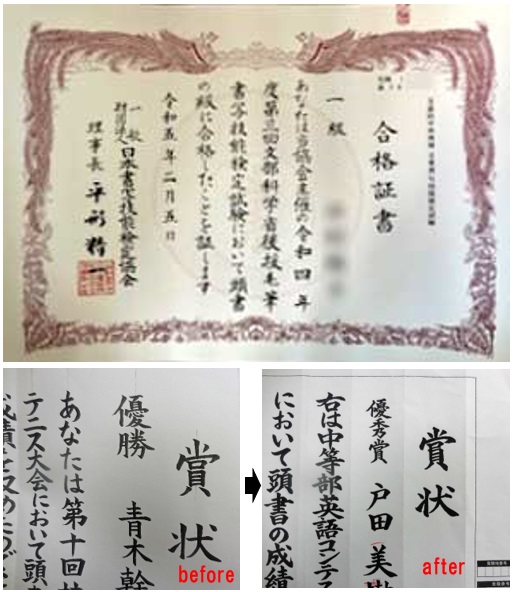 合格証書
一級
あなたは当協会主催の令和四年
度第三回文部科学省後援毛筆
書写技能検定試験において頭書
の級に合格したことを証します
令和五年二月五日
一般
財団法人日本書写技能検定協会
理事長 平形精一
賞状
優勝 青木幹
あなたは第十回
テニス大会において頭
成績を収めたので
before
賞状
優秀賞 戸田 美
右は中等部英語コンテス
において頭書の成績
after